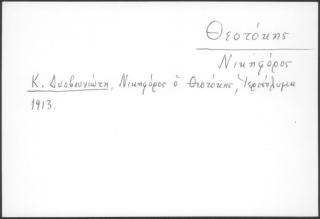 Θεοτόκης
Νικηφόρος
Κ. Δυοβουνιώτη, Νικηφόρος ὁ Θεοτόκης, Ἱεροσόλυμα
1913.